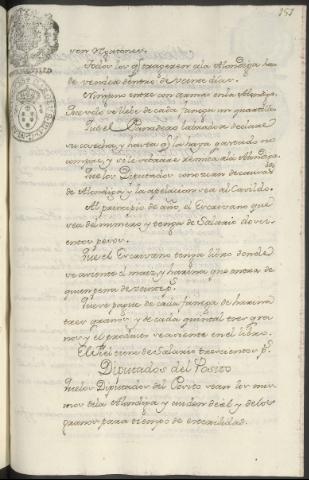 151
ven Regatones.
Todos los q traxeren ala Alondiga han
de vender dentro de veinte dias.
Ninguno entre con armas en la Alondiga.
Que solo se llebe de cada fanega un quartillo.
Que el Panadero labrador declare
su cosecha, y hasta q la haya gastado no
compre, y si le sobrare venda ala Alondiga.
Que los Diputados conozcan de causas
de Alondiga y la apelacion vea al Cavildo.
Al principio de año, el Escrivano que
sea del numero, y tenga de Salario dosci-
entos pesos.
Que el Escrivano tenga libro donde
se asiente el maiz, y harina que entra, de
quien pena de veinte ps
Que se pague de cada fanega de harina
tres granos, y de cada quintal tres gra-
nos y el producto se asiente en el libro.
El Fiel tiene de Salario trescientos ps.
Diputados del Posito
Que los Diputados del Posito sean los mis-
mos dela Alondiga y cuiden de el y de los
granos para tiempo de esterilidad.